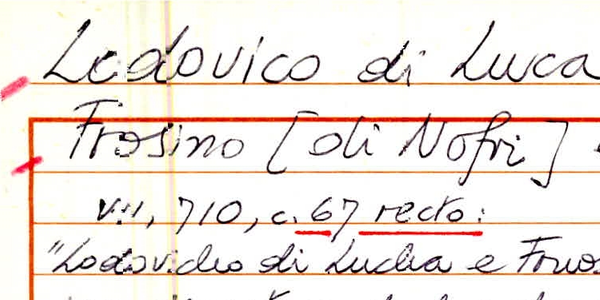 Lodovico di Luca
Frosino [di Nofri]
VIII, 710, c. 67 recto:
"Lodovicho di Lucha e Fruos